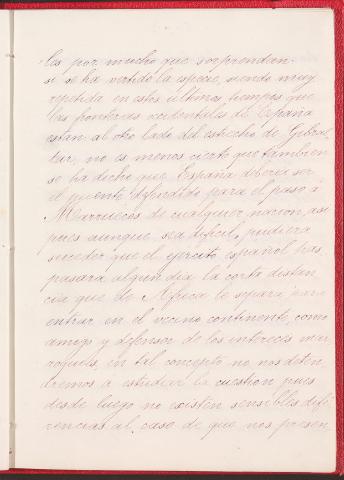 les por mucho que sorprendan.
si se ha vertido la especie, siendo muy
repetida en estos últimos tiempos que
las fronteras occidentales de España
estan al otro lado del estrecho de Gibral
tar, no es menos cierto que tambien
se ha dicho que España deberia ser
el puente defendido para el paso á
Marruecos de cualquier nacion, asi
pues aunque sea dificil, pudiera
suceder que el ejército español tras
pasara algun dia la corta distan
cia que de Africa le separa para
entrar en el vecino continente, como
amigo y defensor de los intereses mar
roquies, en tal concepto no nos deten
dremos á estudiar la cuestion pues
desde luego no existen sensibles dife
rencias al caso de que nos presen